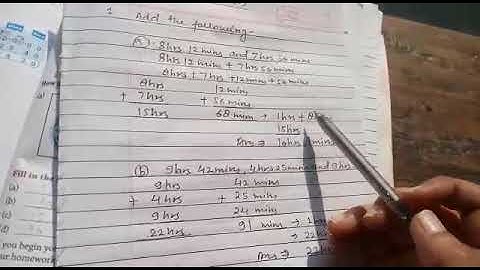 1. Add the following-
(a) 8hrs 12 mins and 7 hrs 56 mins
8hrs 12 mins + 7hrs 56 mins
8hrs + 7hrs +12mins + 56 mins
8hrs 12 mins
+ 7hrs + 56 mins
15 hrs 68 mins → 1hr + 8
15hrs
Ans ⇒ 16hrs mins
(b) 9hrs 42 mins, 4hrs 25 mins and 9hrs
9hrs 42 mins
+ 4hrs + 25 mins
9hrs 24 mins
22hrs 91 mins → 1
→ 22h
Ans ⇒ 22h
Fill in the
(a)
(b)
(c)
(d)
you begin you
ur homework